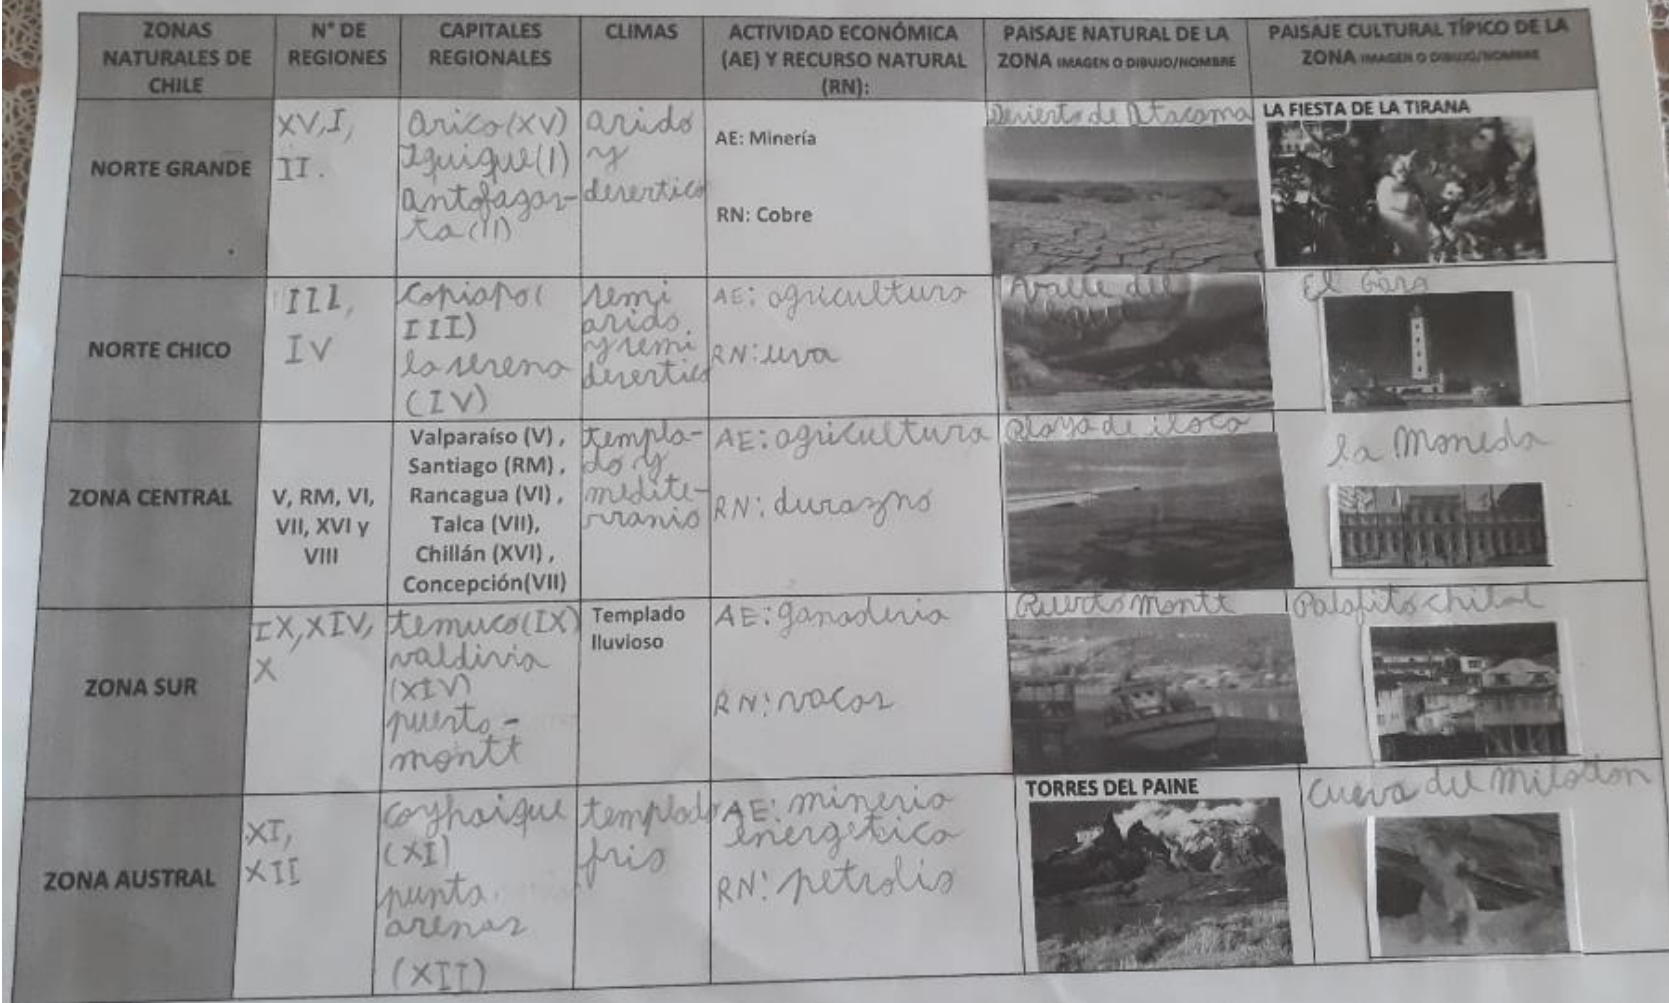 ZONAS NATURALES DE CHILE
N° DE REGIONES
CAPITALES REGIONALES
CLIMAS
ACTIVIDAD ECONÓMICA (AE) Y RECURSO NATURAL (RN):
PAISAJE NATURAL DE LA ZONA IMAGEN O DIBUJO/NOMBRE
PAISAJE CULTURAL TÍPICO DE LA ZONA IMAGEN O DIBUJO/NOMBRE
NORTE GRANDE
XV, I,
II.
Arica (XV)
Iquique (I)
antofagas-
ta (II)
arido
y
desertico
AE: Minería
RN: Cobre
Desierto de Atacama
LA FIESTA DE LA TIRANA
NORTE CHICO
III,
IV
Copiapo (
III)
la serena
(IV)
semi
arido.
y semi
desertico
AE: agricultura
RN: uva
Valle del
El Faro
ZONA CENTRAL
V, RM, VI,
VII, XVI y
VIII
Valparaíso (V) ,
Santiago (RM) ,
Rancagua (VI) ,
Talca (VII),
Chillán (XVI) ,
Concepción(VII)
templa-
do y
medite-
rranio
AE: agricultura
RN: durazno
Playa de iloca
la Moneda
ZONA SUR
IX, XIV,
X
temuco (IX)
valdivia
(XIV)
puerto-
montt
Templado
lluvioso
AE: ganaderia
RN: vacas
Puerto montt
Palafito
ZONA AUSTRAL
XI,
XII
coyhaique
(XI)
punta.
arenas
(XII)
templado
frio
AE: mineria
energetica
RN: petrolio
TORRES DEL PAINE
Cueva del